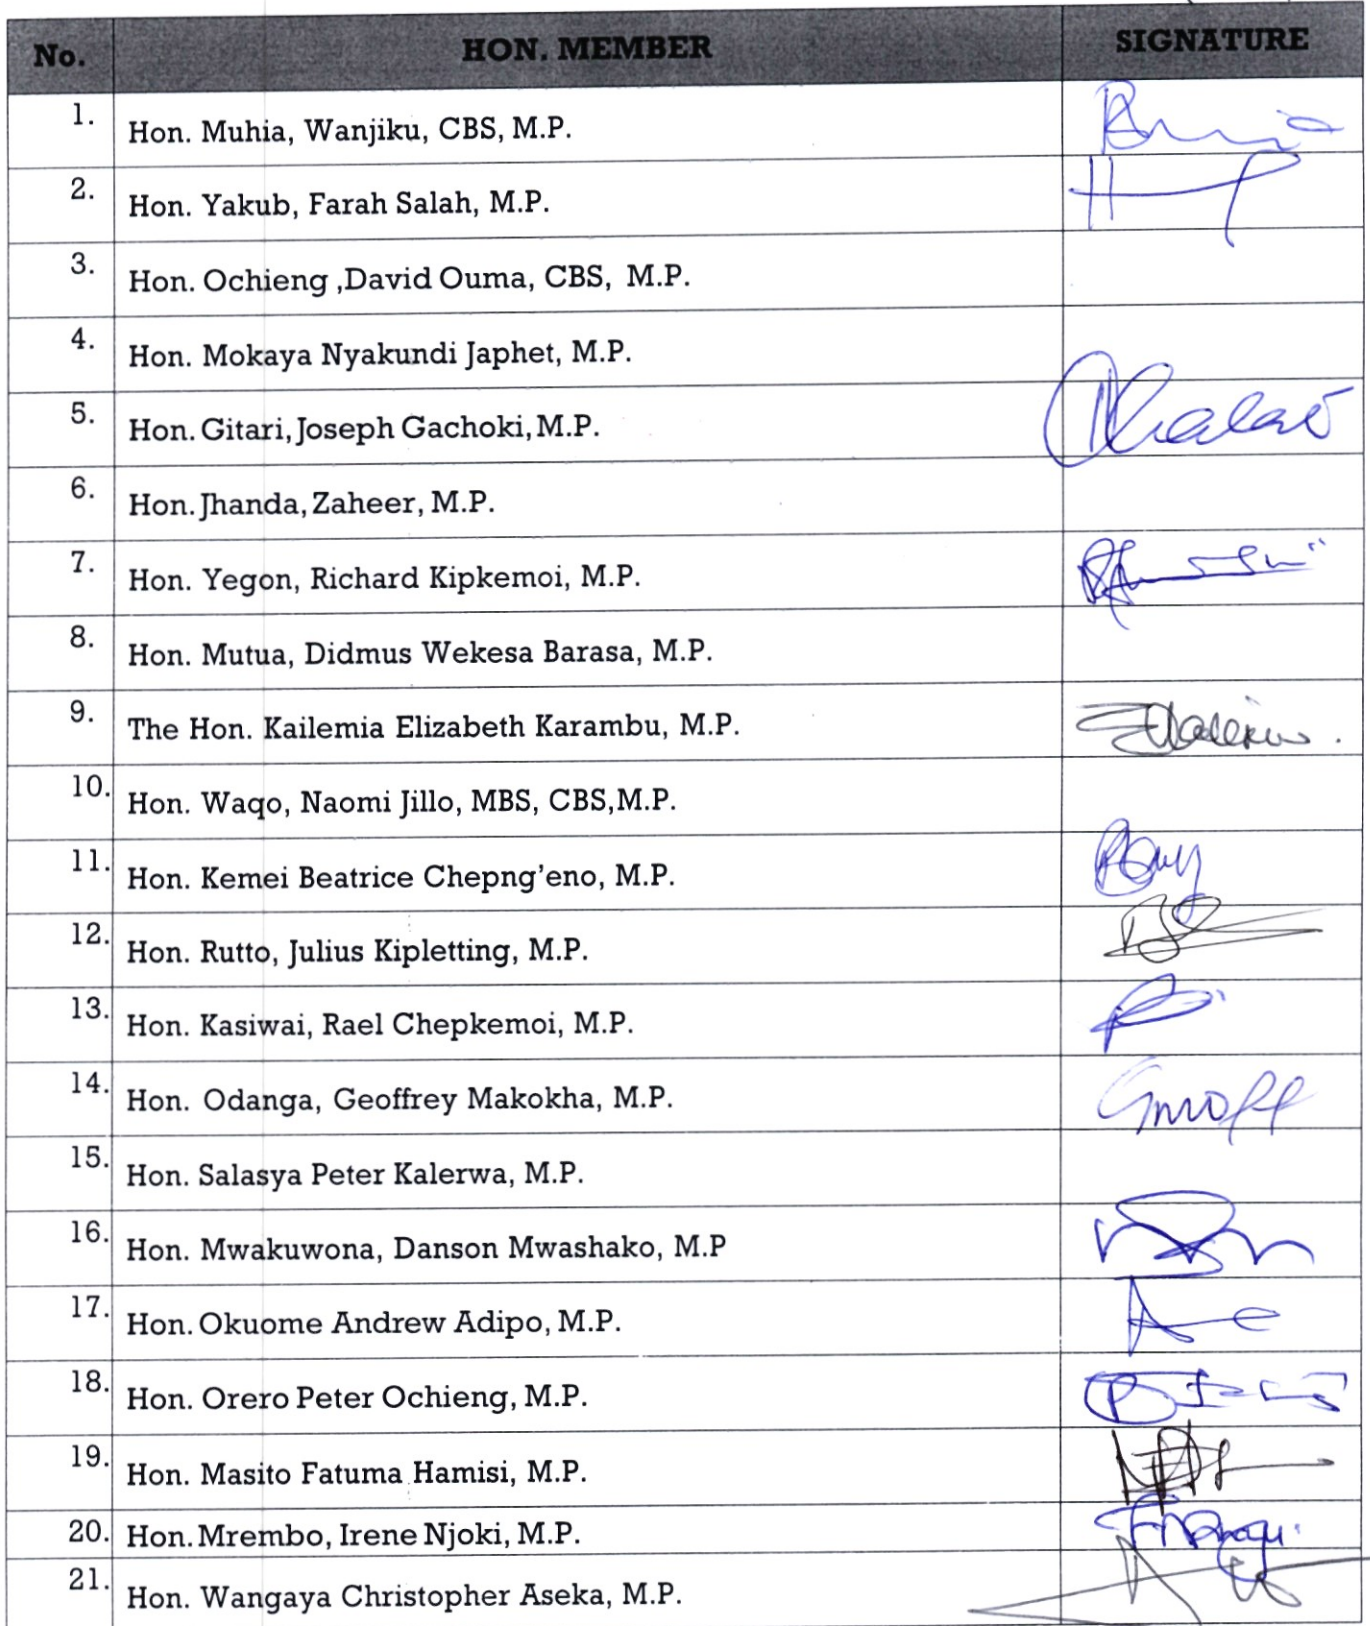 No. HON. MEMBER SIGNATURE
1. Hon. Muhia, Wanjiku, CBS, M.P.
2. Hon. Yakub, Farah Salah, M.P.
3. Hon. Ochieng ,David Ouma, CBS, M.P.
4. Hon. Mokaya Nyakundi Japhet, M.P.
5. Hon. Gitari, Joseph Gachoki, M.P.
6. Hon. Jhanda, Zaheer, M.P.
7. Hon. Yegon, Richard Kipkemoi, M.P.
8. Hon. Mutua, Didmus Wekesa Barasa, M.P.
9. The Hon. Kailemia Elizabeth Karambu, M.P.
10. Hon. Waqo, Naomi Jillo, MBS, CBS,M.P.
11. Hon. Kemei Beatrice Chepng’eno, M.P.
12. Hon. Rutto, Julius Kipletting, M.P.
13. Hon. Kasiwai, Rael Chepkemoi, M.P.
14. Hon. Odanga, Geoffrey Makokha, M.P.
15. Hon. Salasya Peter Kalerwa, M.P.
16. Hon. Mwakuwona, Danson Mwashako, M.P
17. Hon. Okuome Andrew Adipo, M.P.
18. Hon. Orero Peter Ochieng, M.P.
19. Hon. Masito Fatuma Hamisi, M.P.
20. Hon. Mrembo, Irene Njoki, M.P.
21. Hon. Wangaya Christopher Aseka, M.P.